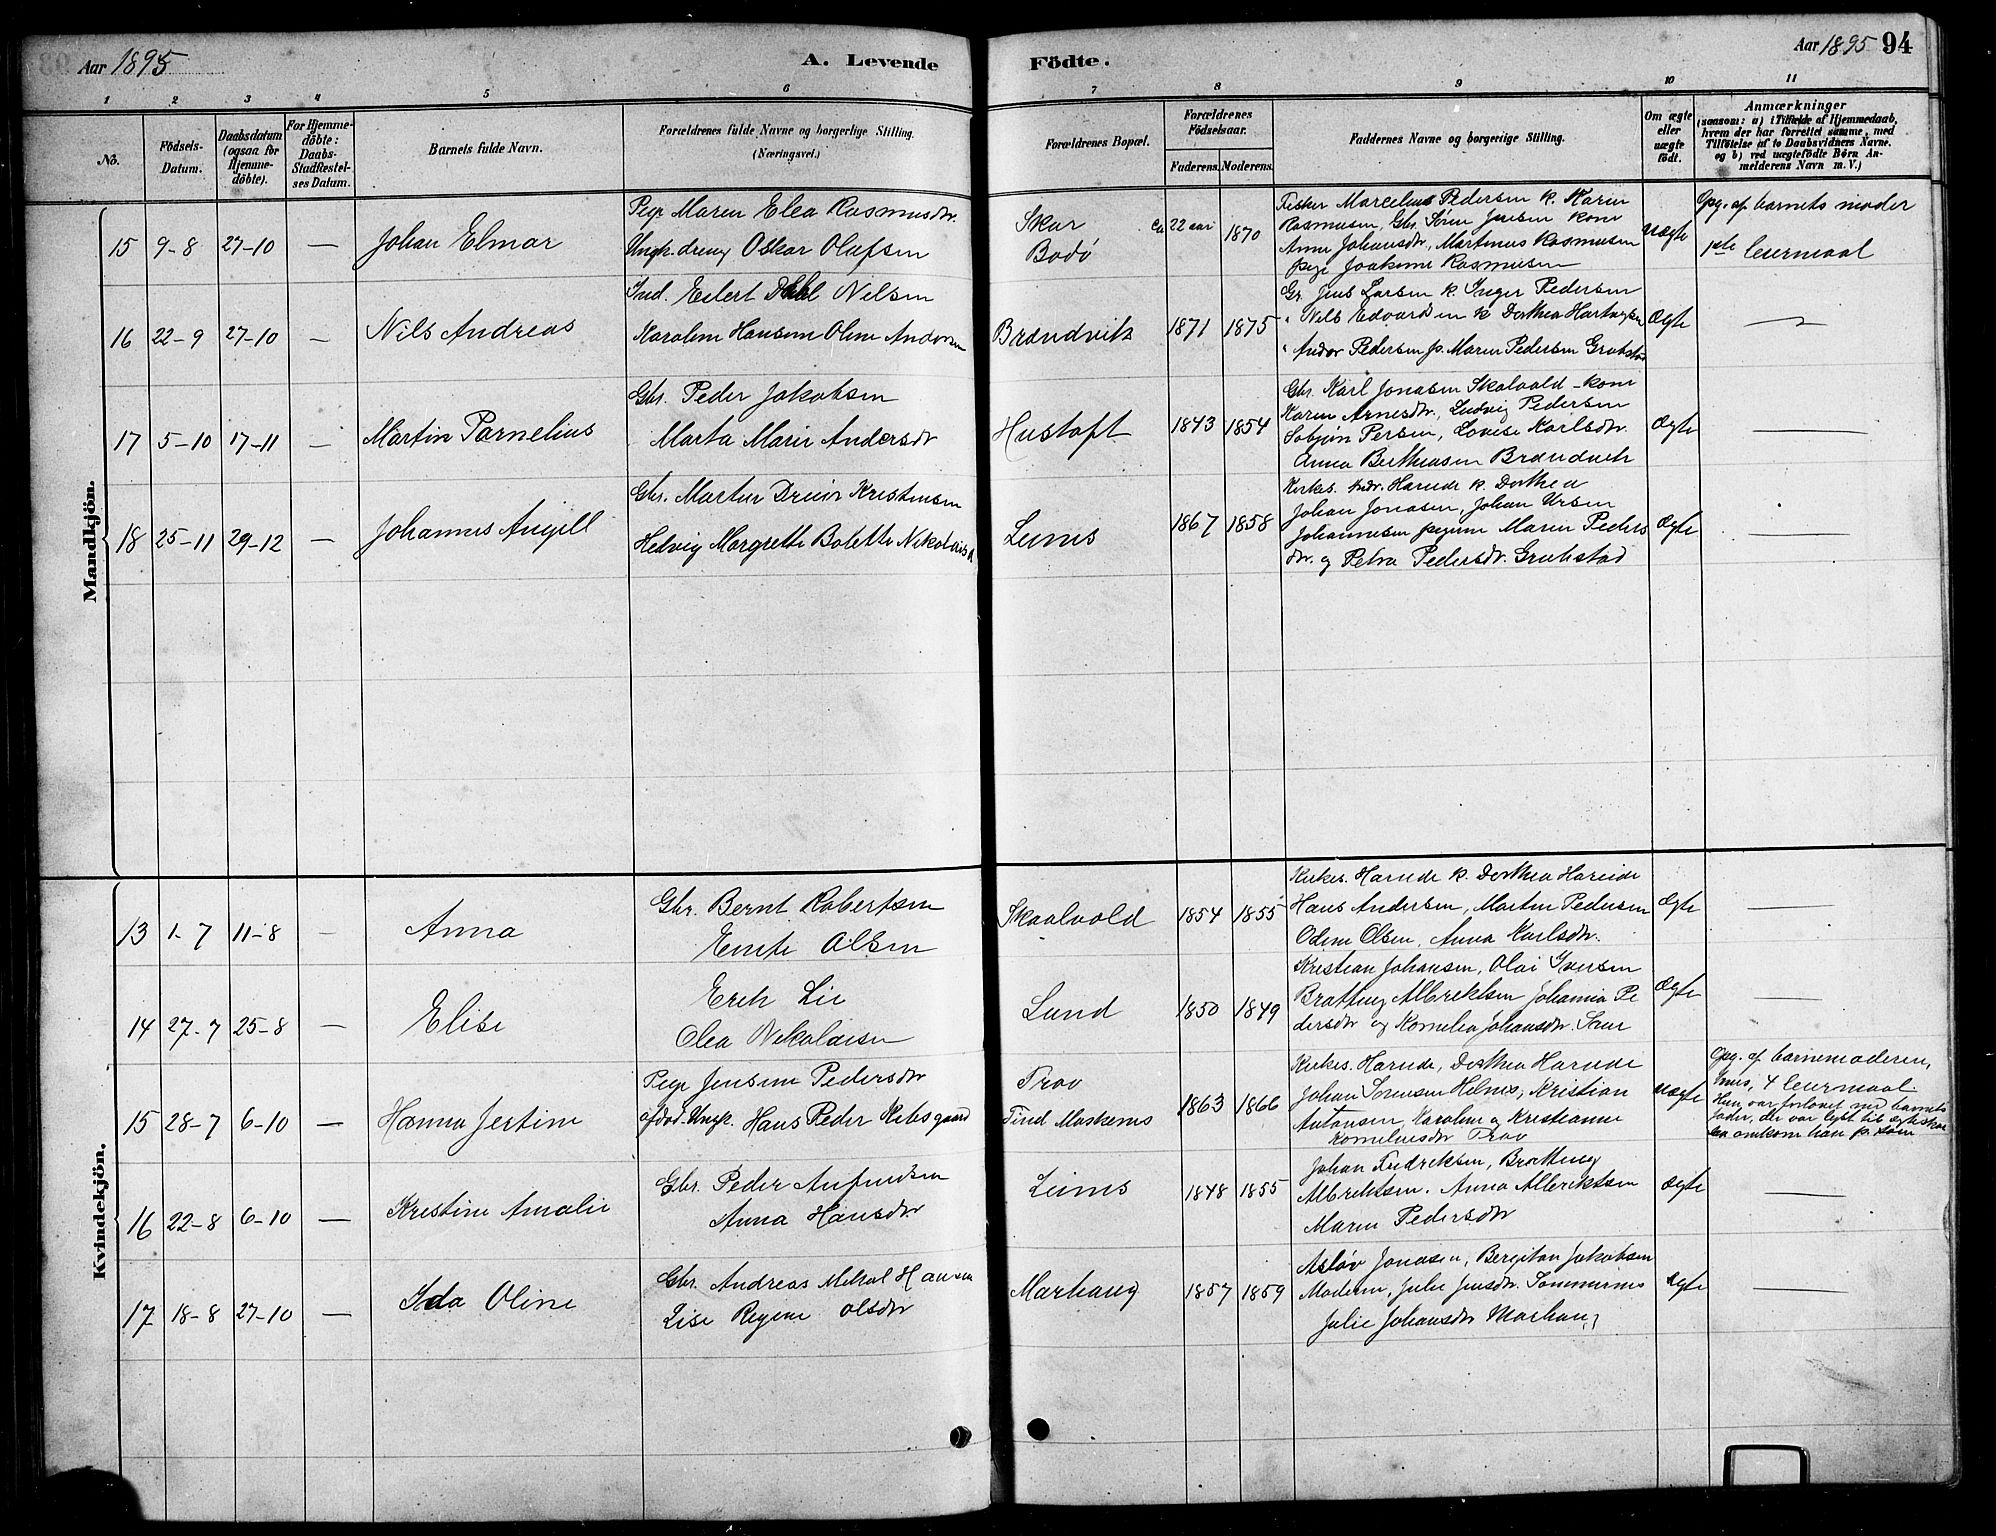 Aar 1895
A. Levende
Födte.
Aar 1895 94
1 2 3 4 5 6 7 8 9 10 11
No.
Födsels-
Datum.
Daabsdatum
(ogsaa for
Hjemme-
döbte).
For Hjemme-
döbte:
Daabs-
Stadfæstel-
ses Datum.
Barnets fulde Navn.
Forældrenes fulde Navne og borgerlige Stilling.
(Næringsvei.)
Forældrenes Bopæl.
Forældrenes
Födselsaar.
Faderens. Moderens.
Faddernes Navne og borgerlige Stilling.
Om ægte
eller
uægte
födt.
Anmærkninger
(saasom: a) i Tilfælde af Hjemmedaab,
hvem der har forrettet samme, med
Tilföielse af to Daabsvidners Navne.
og b) ved uægtefödte Börn An-
melderens Navn m. V.)
Mandkjön.
15 9-8 27-10 — Johan Elmar
Pige Maren Elea Rasmusdtr.
Ungk. dreng Oskar Olafsen
Skar
Bodö
ca 22 aar 1870
Fisker Marcelius Pedersen k. Karen
Rasmusen, Gbr. Sören Jensen kone
Anne Johansdtr., Martinus Rasmusen
pige Joakime Rasmusen
uægte
Opg. af barnets moder
1ste leiermaal
16 22-9 27-10 — Nils Andreas
Ind. Eilert Dahl Nilsen
Karoline Hansine Oline Andersen
Brændvik
1871 1875
Gr. Jens Larsen k. Inger Pedersen
" Nils Edvardsen k Dorthea Hartvigsen
" Andor Pedersen p. Maren Pedersen Grobstad
Ægte —
17 5-10 17-11 — Martin Parnelius
Gbr. Peder Jakobsen
Marta Marie Andersdtr
Hustoft
1843 1854
Gbr. Karl Jonasen Skalvold - kone
Karen Arnesdtr., Ludvig Pedersen
Persen, Lovise Karlsdtr.
Anna Bertheasen Brændvik
Ægte —
18 25-11 29-12 — Johannes Angell
Gbr. Martin Kristensen
Helvig Margrette Bolette Nikolaisd
Leines
1867 1858
Kirkes. Hareide k. Dorthea
Johan Jonasen, Johan Ursin
Johannesen pigerne Maren Peders
dtr. og Petra Pedersdtr. Grobstad
Ægte —
Kvindekjön.
13 1-7 11-8 — Anna
Gbr. Bernt Robertsen
Olsen
Skaalvold
1854 1855
Kirkes. Hareide k. Dorthea Hareide
Hans Andersen, Martin Pedersen
Odine Olsen, Anna Karlsdtr.
Ægte —
14 27-7 25-8 — Elise
Erik Lie
Olea Nikolaisen
Lund
1850 1849
Kristian Johansen, Olai Iversen
Albriktsen Johanna Pe
dersdtr og Kornelia Johansdtr.
Ægte —
15 28-7 6-10 — Hanna Jestine
Pige Jensine Pedersdtr
afdød Ungk. Hans Peder Kibsgaard
Trøv
Tind Moskenes
1863 1866
Kirkes. Hareide, Dorthea Hareide
Johan Sörensen Helnes, Kristian
Antonsen, Karoline og Kristianne
Korneliusdtr Trøv
uægte
Opg. af barnemoderen,
4 leiermaal.
Hun var forlovet med barnets
fader, der var lyst til ægteskab
omkom han p. söen
16 22-8 6-10 — Kristine Amalie
Gbr. Peder Anfindsen
Anna Hansdtr
Leines
1848 1855
Johan Fredriksen,
Albriktsen, Anna Albriktsen
Maren Pedersdtr
Ægte —
17 18-8 27-10 — Ida Oline
Gbr. Andreas Mikal Hansen
Lise Regine Olsdtr
Marhaug
1857 1859
Asløv Jonasen, Bergitan Jakobsen
Moderen, Julie Jensdtr. Sommernes
Julie Johansdtr Marhaug
Ægte —